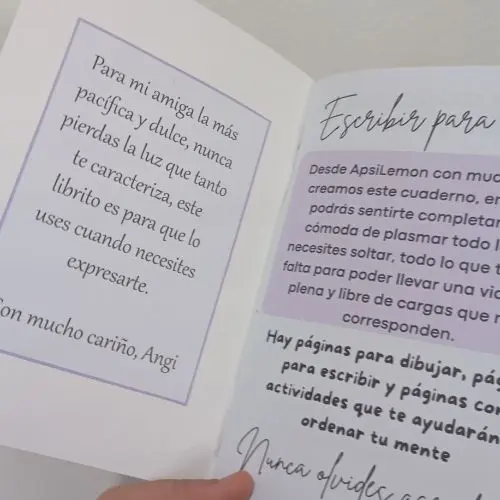 Para mi amiga la más
pacífica y dulce, nunca
pierdas la luz que tanto
te caracteriza, este
librito es para que lo
uses cuando necesites
expresarte.
Con mucho cariño, Angi
Escribir para
Desde ApsiLemon con muc
creamos este cuaderno, en
podrás sentirte completa
cómoda de plasmar todo l
necesites soltar, todo lo que t
falta para poder llevar una vi
plena y libre de cargas que n
corresponden.
Hay páginas para dibujar, pág
para escribir y páginas con
actividades que te ayudarán
ordenar tu mente
Nunca olvides